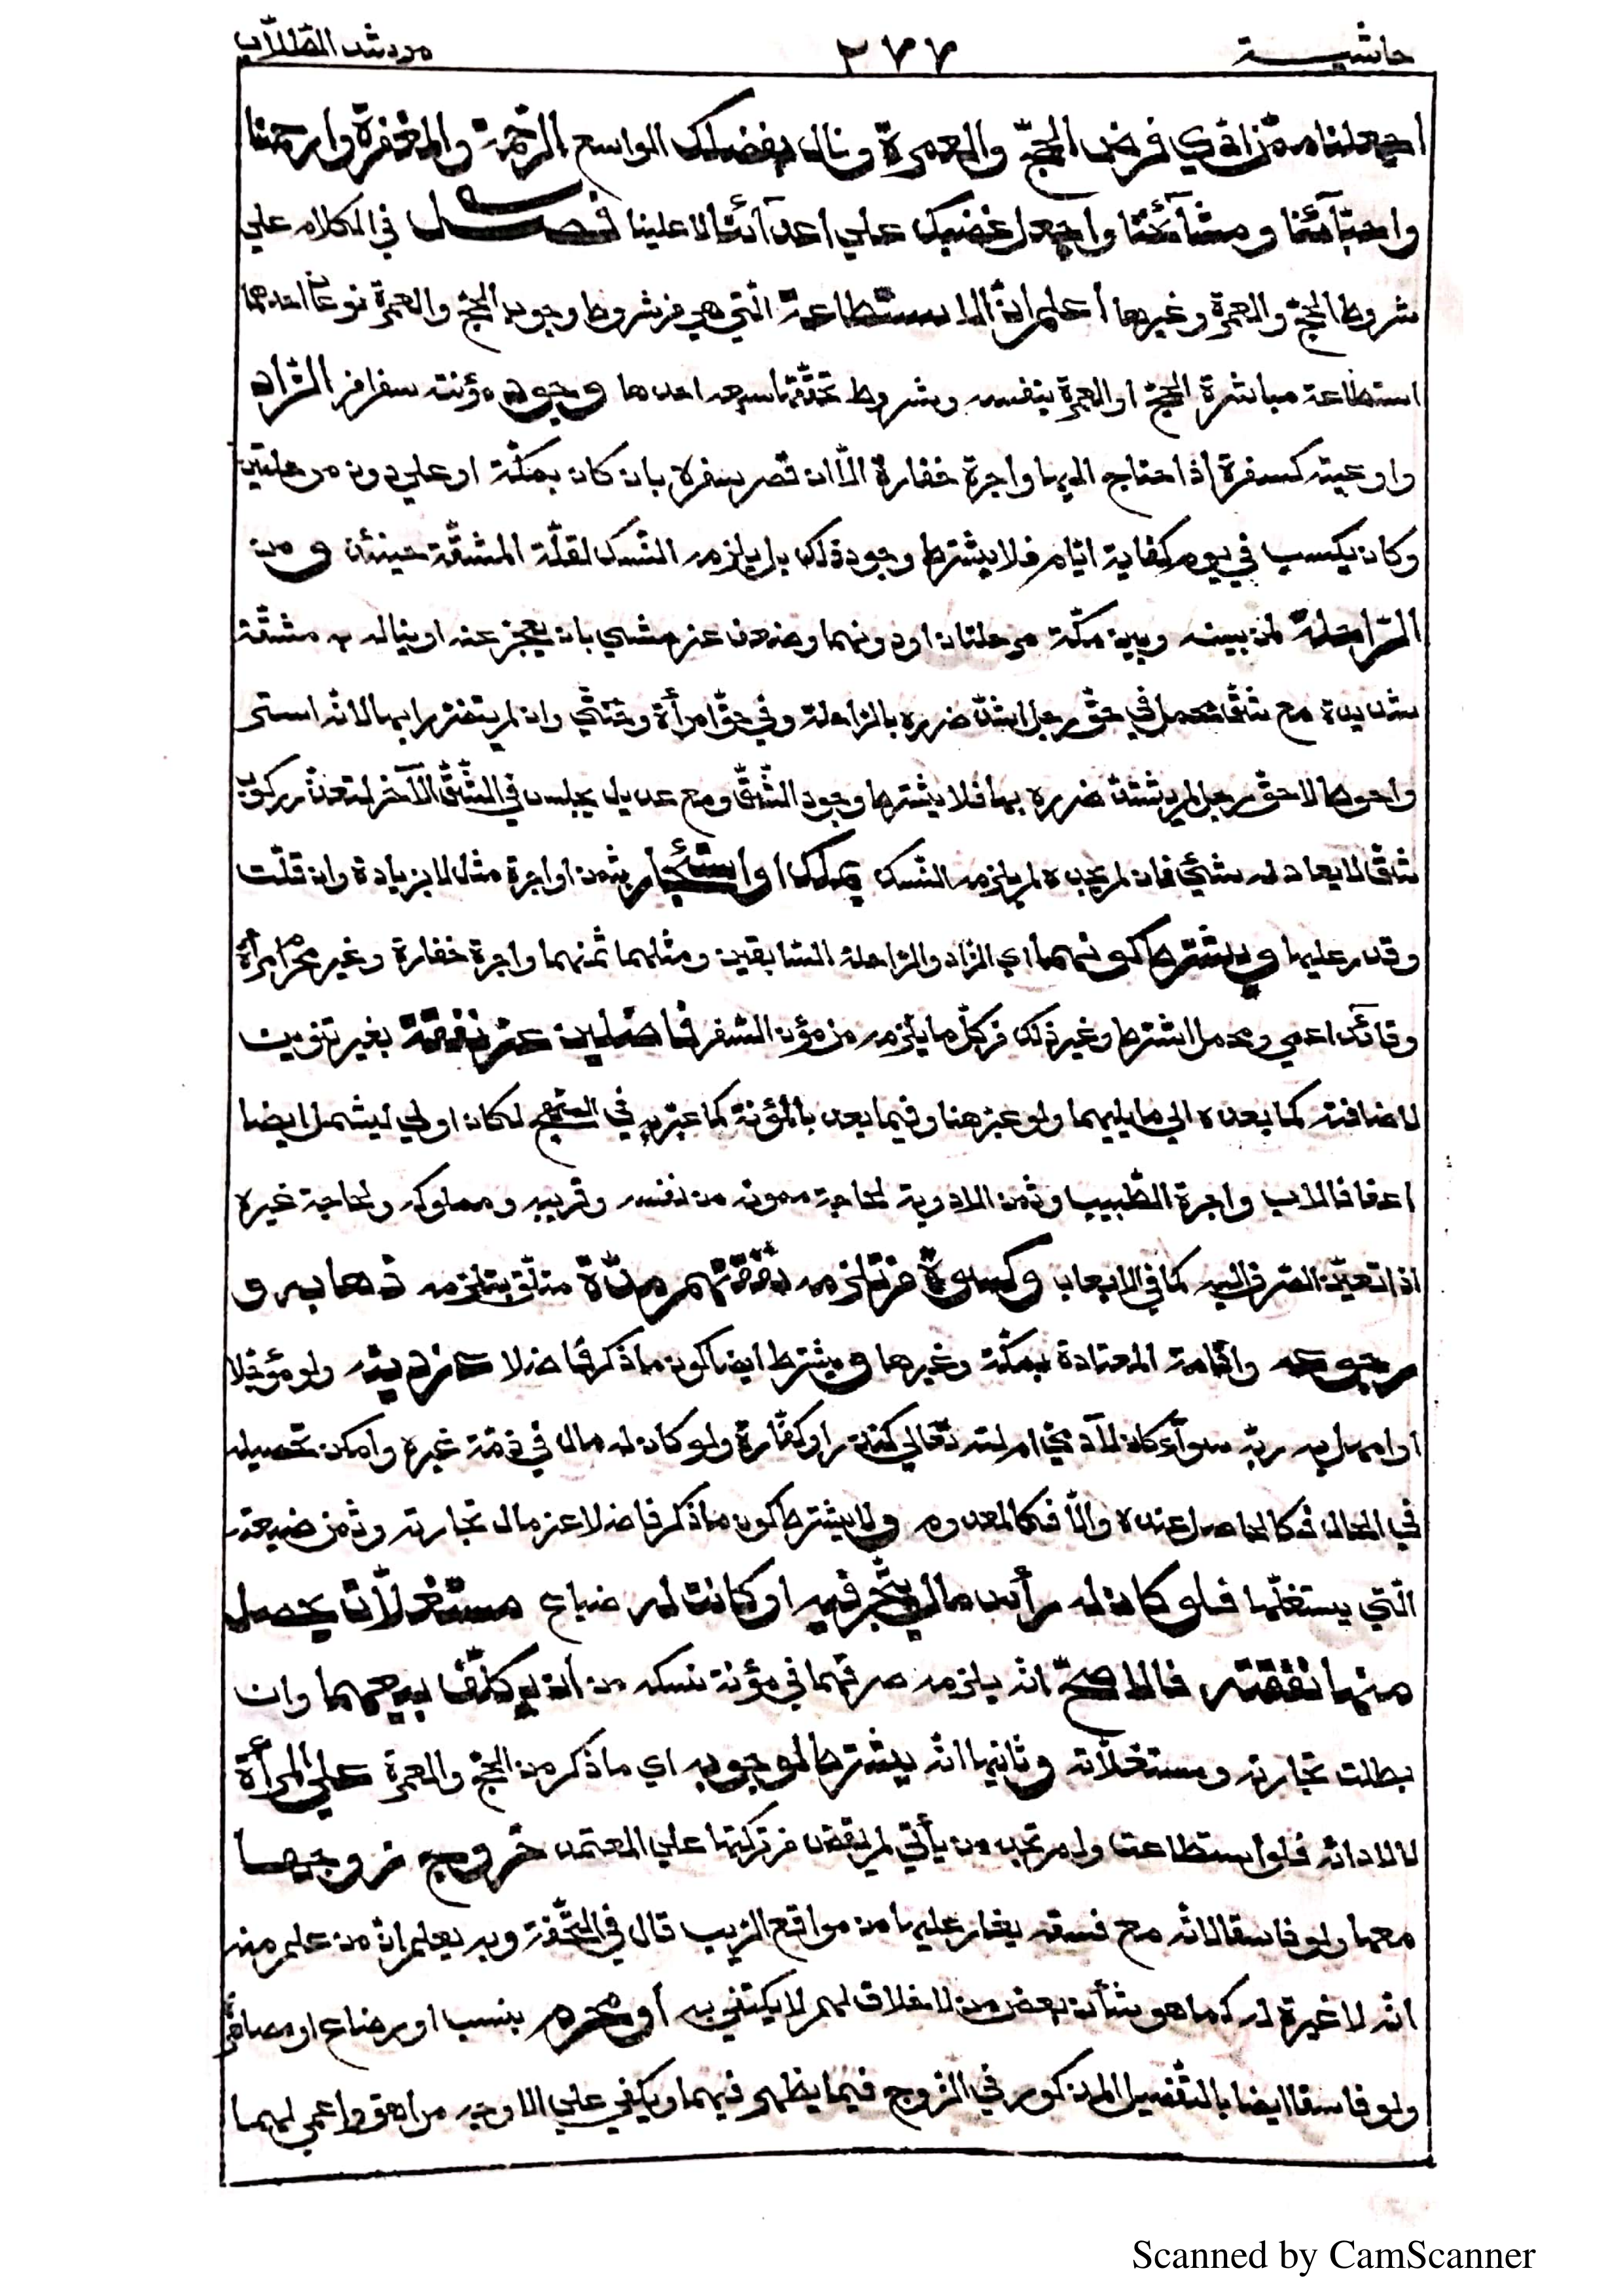 حاشيـــة ٢٧٧ مرشد الطلاب
اجعلنا ممن ادي فرض الحج والعمرة ونال بفضلك الواسع الرحمة والمغفرة وارحمنا
واحبآئنا ومشآئخنا واجعل غضبك علي اعدآئنا لا علينا فصـــل في الكلام علي
شروط الحج والعمرة وغيرها أعلم انّ الاستطاعة الّتي هي من شروط وجوب الحج والعمرة نوعان احدهما
استطاعة مباشرة الحج او العمرة بنفسه وشروط تحقّقها سبعه احدها وجود مؤنت سفر من الزاد
واوعيته كسفرة اذا احتاج اليها واجرة خفارة الّا ان قصر سفره بان كان بمكّة او علي دون مرحلتين
وكان يكسب في يوم كفاية ايّام فلا يشترط وجود ذلك بل يلزمه النّسك لقلّة المشقّة حينئذ و من
الرّاحلة لمن بينه وبين مكّة مرحلتان او دونهما وضعف عن مشي بان يعجز عنه او يناله به مشقّة
شديدة مع شقّ محمل في حقّ رجل اشتدّ ضرره بالراحلة وفي حقّ امرأة وخنثي وان لم يتضرر ابها لانّه استر
واحوط لا حقّ رجل لم يشتدّ ضرره بها فلا يشترط وجود الشّقّ ومع عديل يجلس في الشّقّ الآخر لتعذّر ركوب
شقّ لا يعادله شئ فان لم يجده لم يلزمه النّسك بملك او استئجار بثمن او اجرة مثل لا بزيادة وان قلّت
وقدر عليها ويشترط كونهما اي الزاد والراحلة السّابقين ومثلهما ثمنهما واجرة خفارة وغير محرم امرأة
وقائد اعمي ومحمل اشترط وغير ذلك من كلّ ما يلزمه من مؤن السّفر فاضلين عن نفقة بغير تنوين
لاضافته كما بعده الي ما يليهما ولو عبّر هنا وفيما بعد بالمؤنة كما عبّر به في المنهج لكان اولي ليشمل ايضا
اعفاف الاب واجرة الطّبيب وثمن الادوية لحاجة ممونه من نفسه وقريبه ومملوكه ولحاجة غيره
اذا تعيّن الصّرف اليه كما في الايعاب وكسوة من تلزمه نفقتهم مدّة متعلّق بتلزمه ذهابه و
رجوعه واقامته المعتادة بمكّة وغيرها ويشترط ايضا كون ما ذكر فاضلا عن دينه ولو مؤجّلا
او امهل به ربّه سوآء كان لآدميّ ام للّه تعالي كنذر او كفّارة ولو كان له مال في ذمّة غيره وامكن تحصيله
في الحال فكالحاصل عنده والّا فكالمعدوم ولا يشترط كون ما ذكر فاضلا عن مال تجارته وثمن ضيعته
الّتي يستغلّها فلو كان له رأس مال يتّجر فيه او كانت له ضياع مستغلّات يحصل
منها نفقته فالاصحّ انّه يلزمه صرفهما في مؤنة نسكه من ان يكلّف ببيعهما وان
بطلت تجارته ومستغلّاته وثانيها انّه يشترط لوجوبه اي ما ذكر من الحج والعمرة علي المرأة
لا لادائه فلو استطاعت ولم تجد من يأتي لم يقض من تركتها علي المعتمد خروج زوجها
معها ولو فاسقا لانّه مع فسقه يغار عليها من مواقع الريب قال في التّحفة وبه يعلم انّ من علم منه
انّه لا غيرة له كما هو شأن بعض من لا خلاق لهم لا يكتفي به أو محرم بنسب او رضاع او مصاهرة
ولو فاسقا ايضا بالتّفصيل المذكور في الزوج فيما يظهر فيهما ويكفي علي الاوجه مراهق واعمي لهما
Scanned by CamScanner